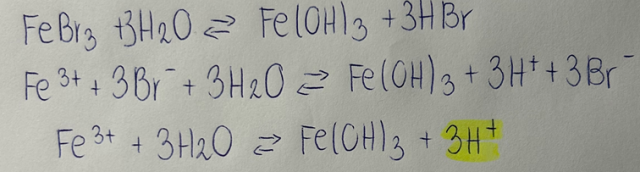 FeBr₃ + 3H₂O ⇄ Fe(OH)₃ + 3HBr
Fe³⁺ + 3Br⁻ + 3H₂O ⇄ Fe(OH)₃ + 3H⁺ + 3Br⁻
Fe³⁺ + 3H₂O ⇄ Fe(OH)₃ + 3H⁺